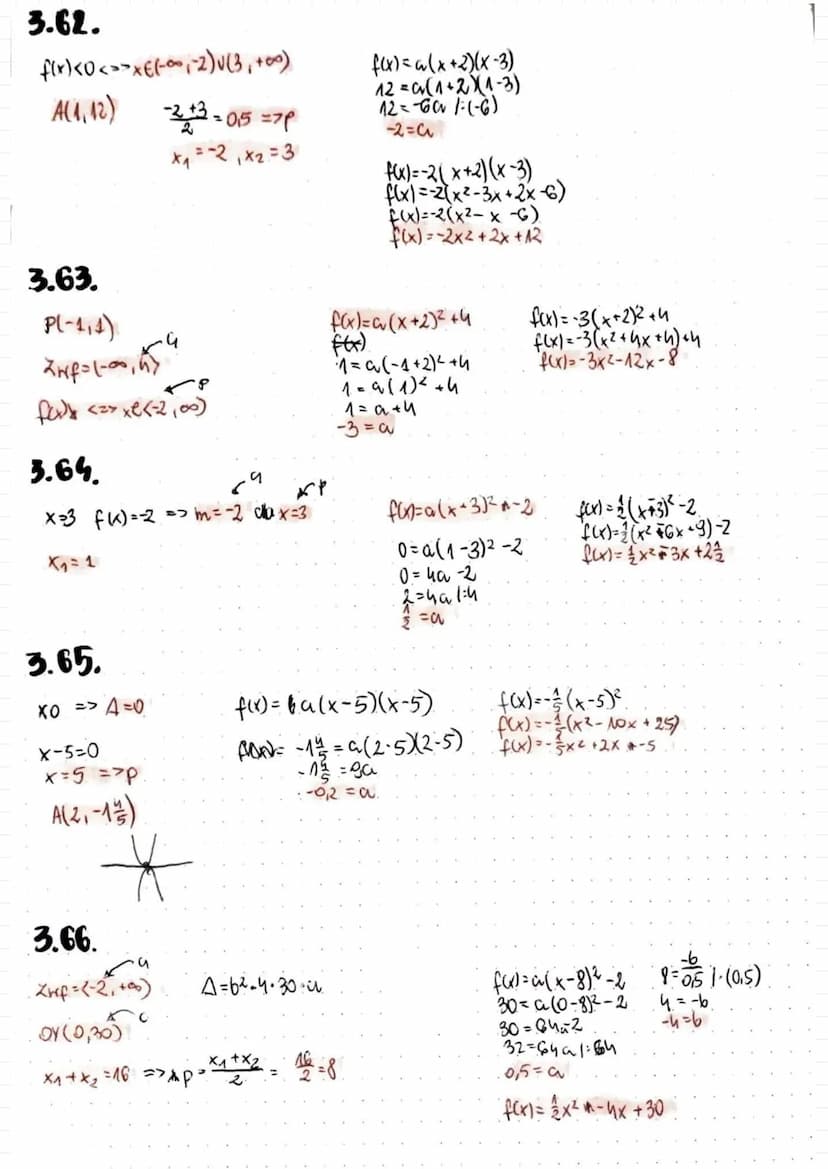 3.62.
f(x)<0 <=> x∈(-∞,-2)∪(3,+∞)
A(1,12)
-2+3/2 = 0,5 => p
x₁ = -2, x₂ = 3
f(x)=a(x+2)(x-3)
12=a(1+2)(1-3)
12=-6a /:(-6)
-2=a
f(x)=-2(x+2)(x-3)
f(x)=-2(x²-3x+2x-6)
f(x)=-2(x²-x-6)
f(x)=-2x²+2x+12
3.63.
P(-1,1)
q
Zwf=(-∞,4>
p
<=> x∈<-2,∞)
f(x)=a(x+2)²+4
f(x)
1=a(-1+2)²+4
1=a(1)²+4
1=a+4
-3=a
f(x)=-3(x+2)²+4
f(x)=-3(x²+4x+4)+4
f(x)=-3x²-12x-8
3.64.
q p
x=3 f(x)=-2 => m=-2 dla x=3
x₁=1
f(x)=a(x-3)²-2
0=a(1-3)²-2
0=4a-2
2=4a /:4
1/2=a
f(x)=1/2(x-3)²-2
f(x)=1/2(x²-6x+9)-2
f(x)=1/2x²-3x+2 1/2
3.65.
x0 => Δ=0
x-5=0
x=5 => p
A(2,-1 4/5)
f(x)=a(x-5)(x-5)
-1 4/5=a(2-5)(2-5)
-1 4/5=9a
-0,2=a
f(x)=-1/5(x-5)²
f(x)=-1/5(x²-10x+25)
f(x)=-1/5x²+2x-5
3.66.
q
Zwf=<-2,+∞)
c
OY(0,30)
x₁+x₂=16 => p=x₁+x₂/2=16/2=8
Δ=b²-4·30·a
f(x)=a(x-8)²-2
30=a(0-8)²-2
30=64a-2
32=64a /:64
0,5=a
8=-b/0,5 /·(0,5)
4=-b
-4=b
f(x)=1/2x²-4x+30